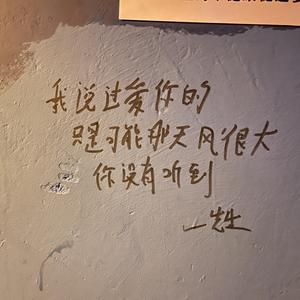 我说过爱你的
只是可能那天风很大
你没有听到